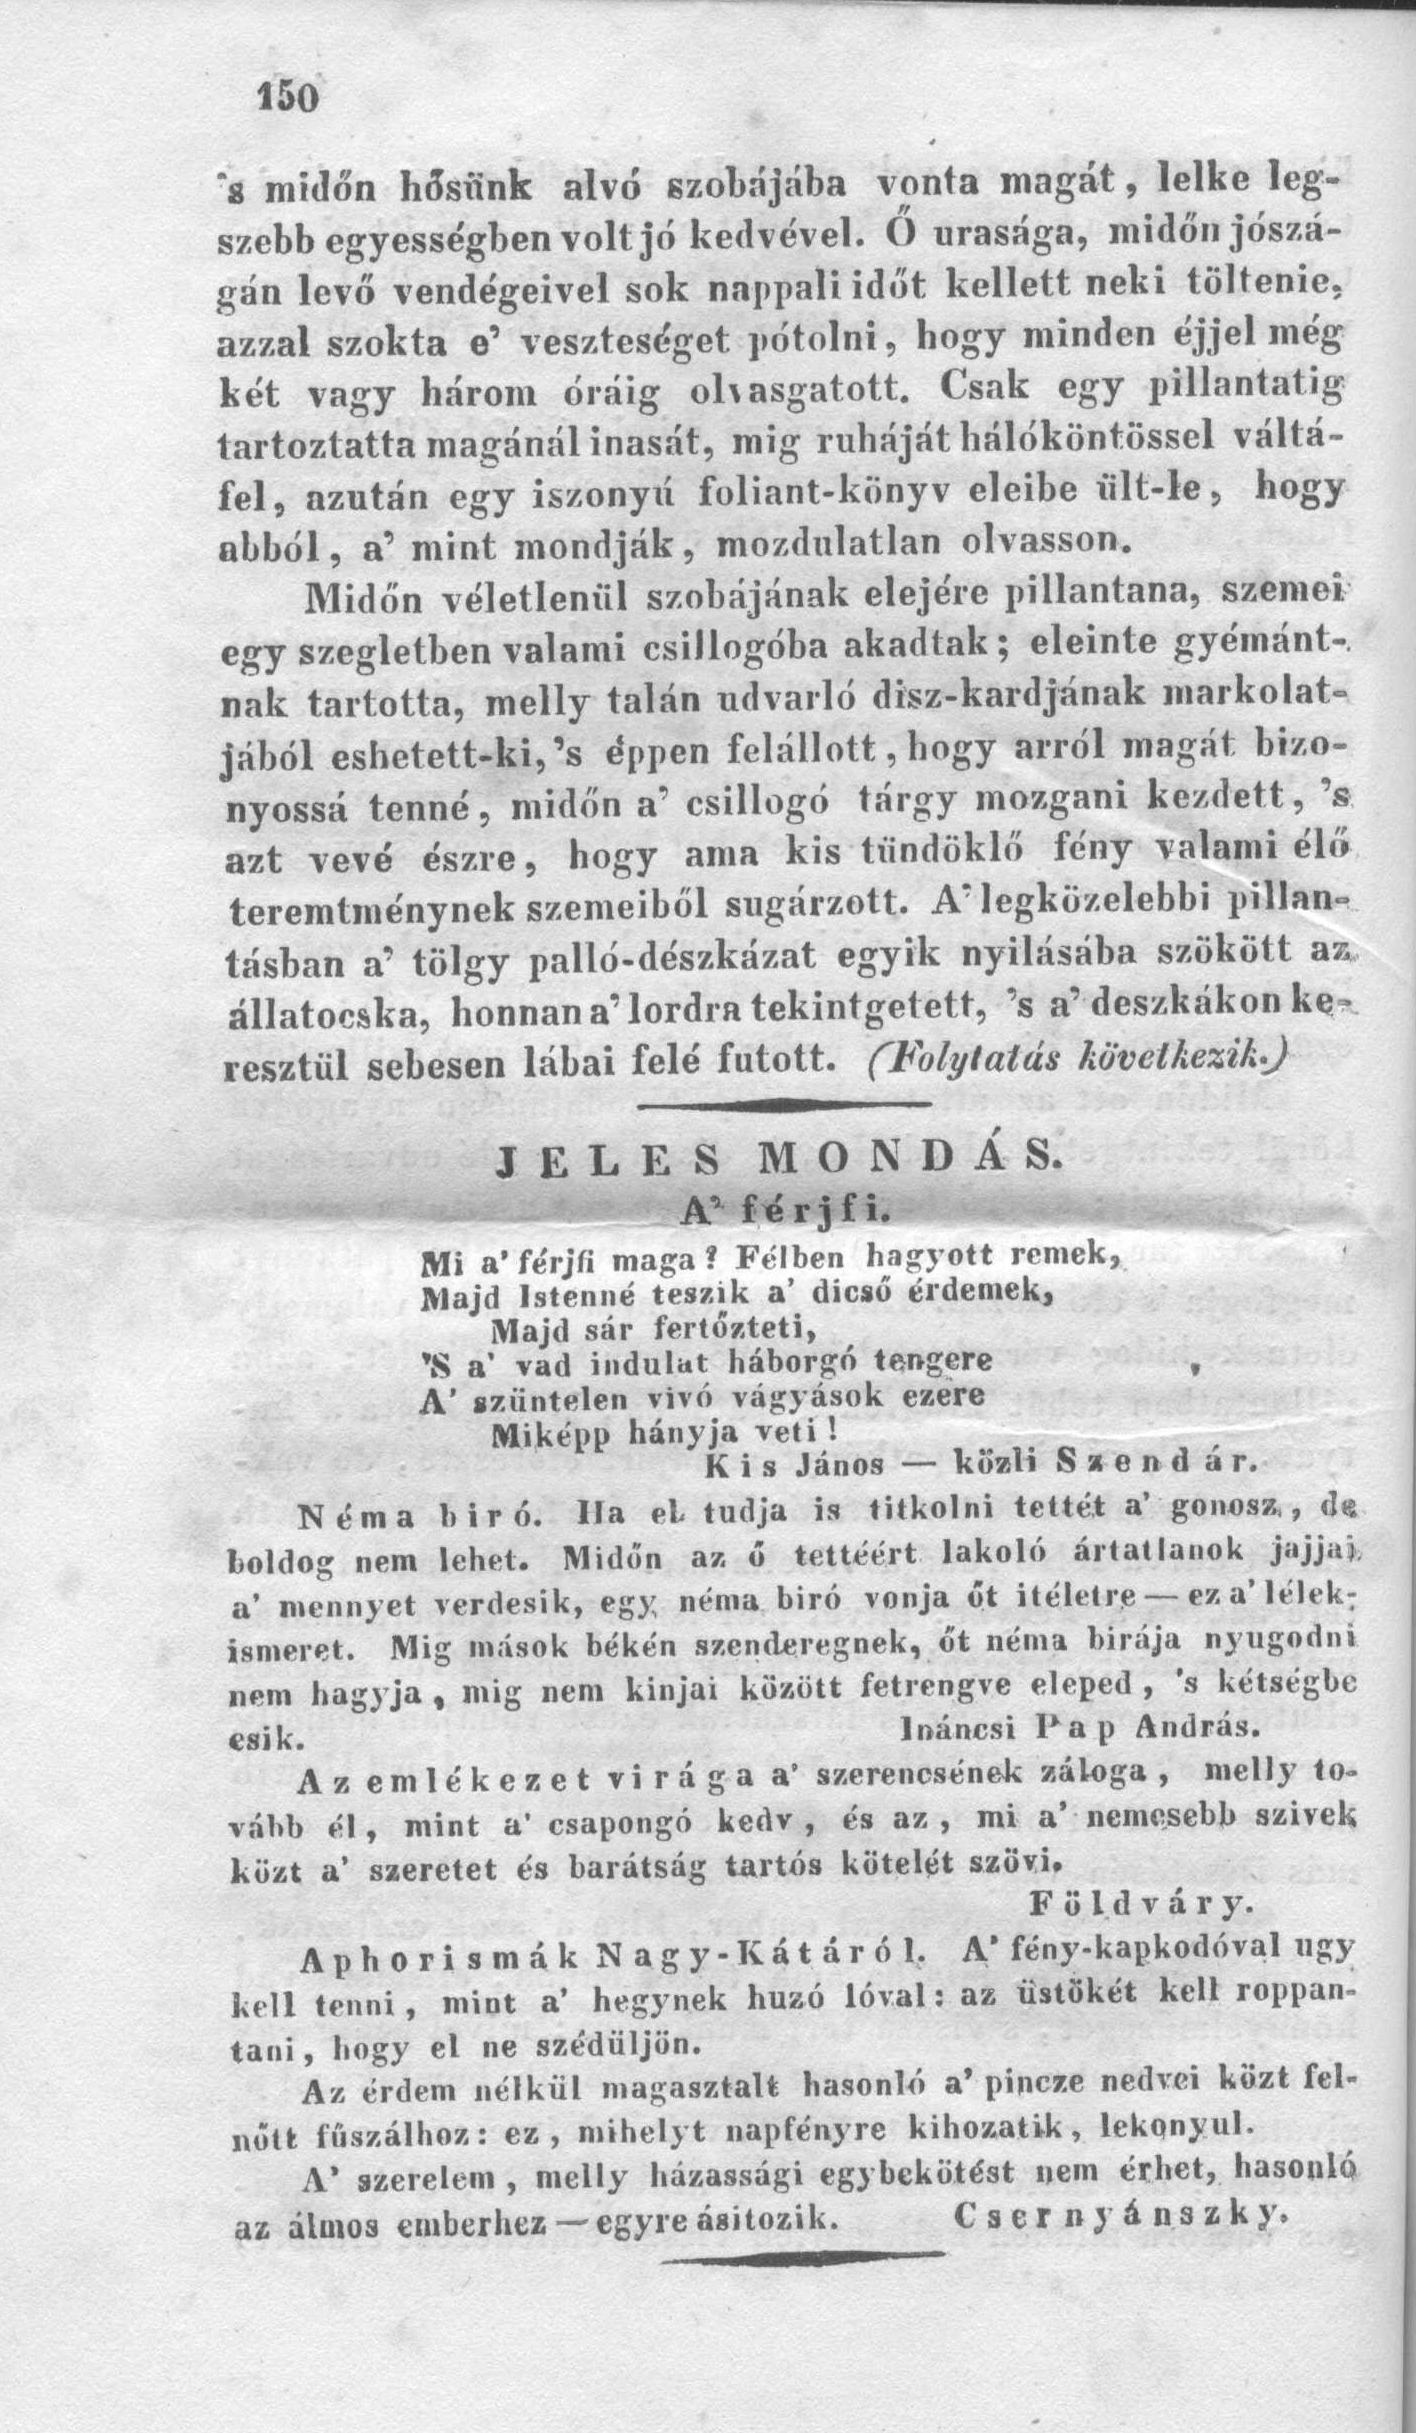 150
's midőn hősünk alvó szobájába vonta magát, lelke leg-
szebb egyességben volt jó kedvével. Ő urasága, midőn jószá-
gán levő vendégeivel sok nappali időt kellett neki töltenie,
azzal szokta e' veszteséget pótolni, hogy minden éjjel még
két vagy három óráig olvasgatott. Csak egy pillantatig
tartoztatta magánál inasát, mig ruháját hálóköntössel váltá-
fel, azután egy iszonyú foliant-könyv eleibe ült-le, hogy
abból, a' mint mondják, mozdulatlan olvasson.
Midőn véletlenül szobájának elejére pillantana, szemei
egy szegletben valami csillogóba akadtak; eleinte gyémánt-
nak tartotta, melly talán udvarló disz-kardjának markolat-
jából eshetett-ki, 's éppen felállott, hogy arról magát bizo-
nyossá tenné, midőn a' csillogó tárgy mozgani kezdett, 's
azt vevé észre, hogy ama kis tündöklő fény valami élő
teremtménynek szemeiből sugárzott. A' legközelebbi pillan-
tásban a' tölgy palló-dészkázat egyik nyilásába szökött az
állatocska, honnan a' lordra tekintgetett, 's a' deszkákon ke-
resztül sebesen lábai felé futott. (Folytatás következik.)
JELES MONDÁS.
A' férjfi.
Mi a' férjfi maga? Félben hagyott remek,
Majd Istenné teszik a' dicső érdemek,
Majd sár fertőzteti,
'S a' vad indulat háborgó tengere
A' szüntelen vivó vágyások ezere
Miképp hányja veti!
Kis János — közli Szendár.
Néma biró. Ha el tudja is titkolni tettét a' gonosz, de
boldog nem lehet. Midőn az ő tettéért lakoló ártatlanok jajjai
a' mennyet verdesik, egy néma biró vonja őt itéletre — ez a' lélek-
ismeret. Mig mások békén szenderegnek, őt néma birája nyugodni
nem hagyja, mig nem kinjai között fetrengve eleped, 's kétségbe
esik. Ináncsi Pap András.
Az emlékezet virága a' szerencsének záloga, melly to-
vább él, mint a' csapongó kedv, és az, mi a' nemesebb szivek
közt a' szeretet és barátság tartós kötelét szövi.
Földváry.
Aphorismák Nagy-Kátáról. A' fény-kapkodóval ugy
kell tenni, mint a' hegynek huzó lóval: az üstökét kell roppan-
tani, hogy el ne szédüljön.
Az érdem nélkül magasztalt hasonló a' pincze nedvei közt fel-
nőtt fűszálhoz: ez, mihelyt napfényre kihozatik, lekonyul.
A' szerelem, melly házassági egybekötést nem érhet, hasonló
az álmos emberhez — egyre ásitozik. Csernyánszky.